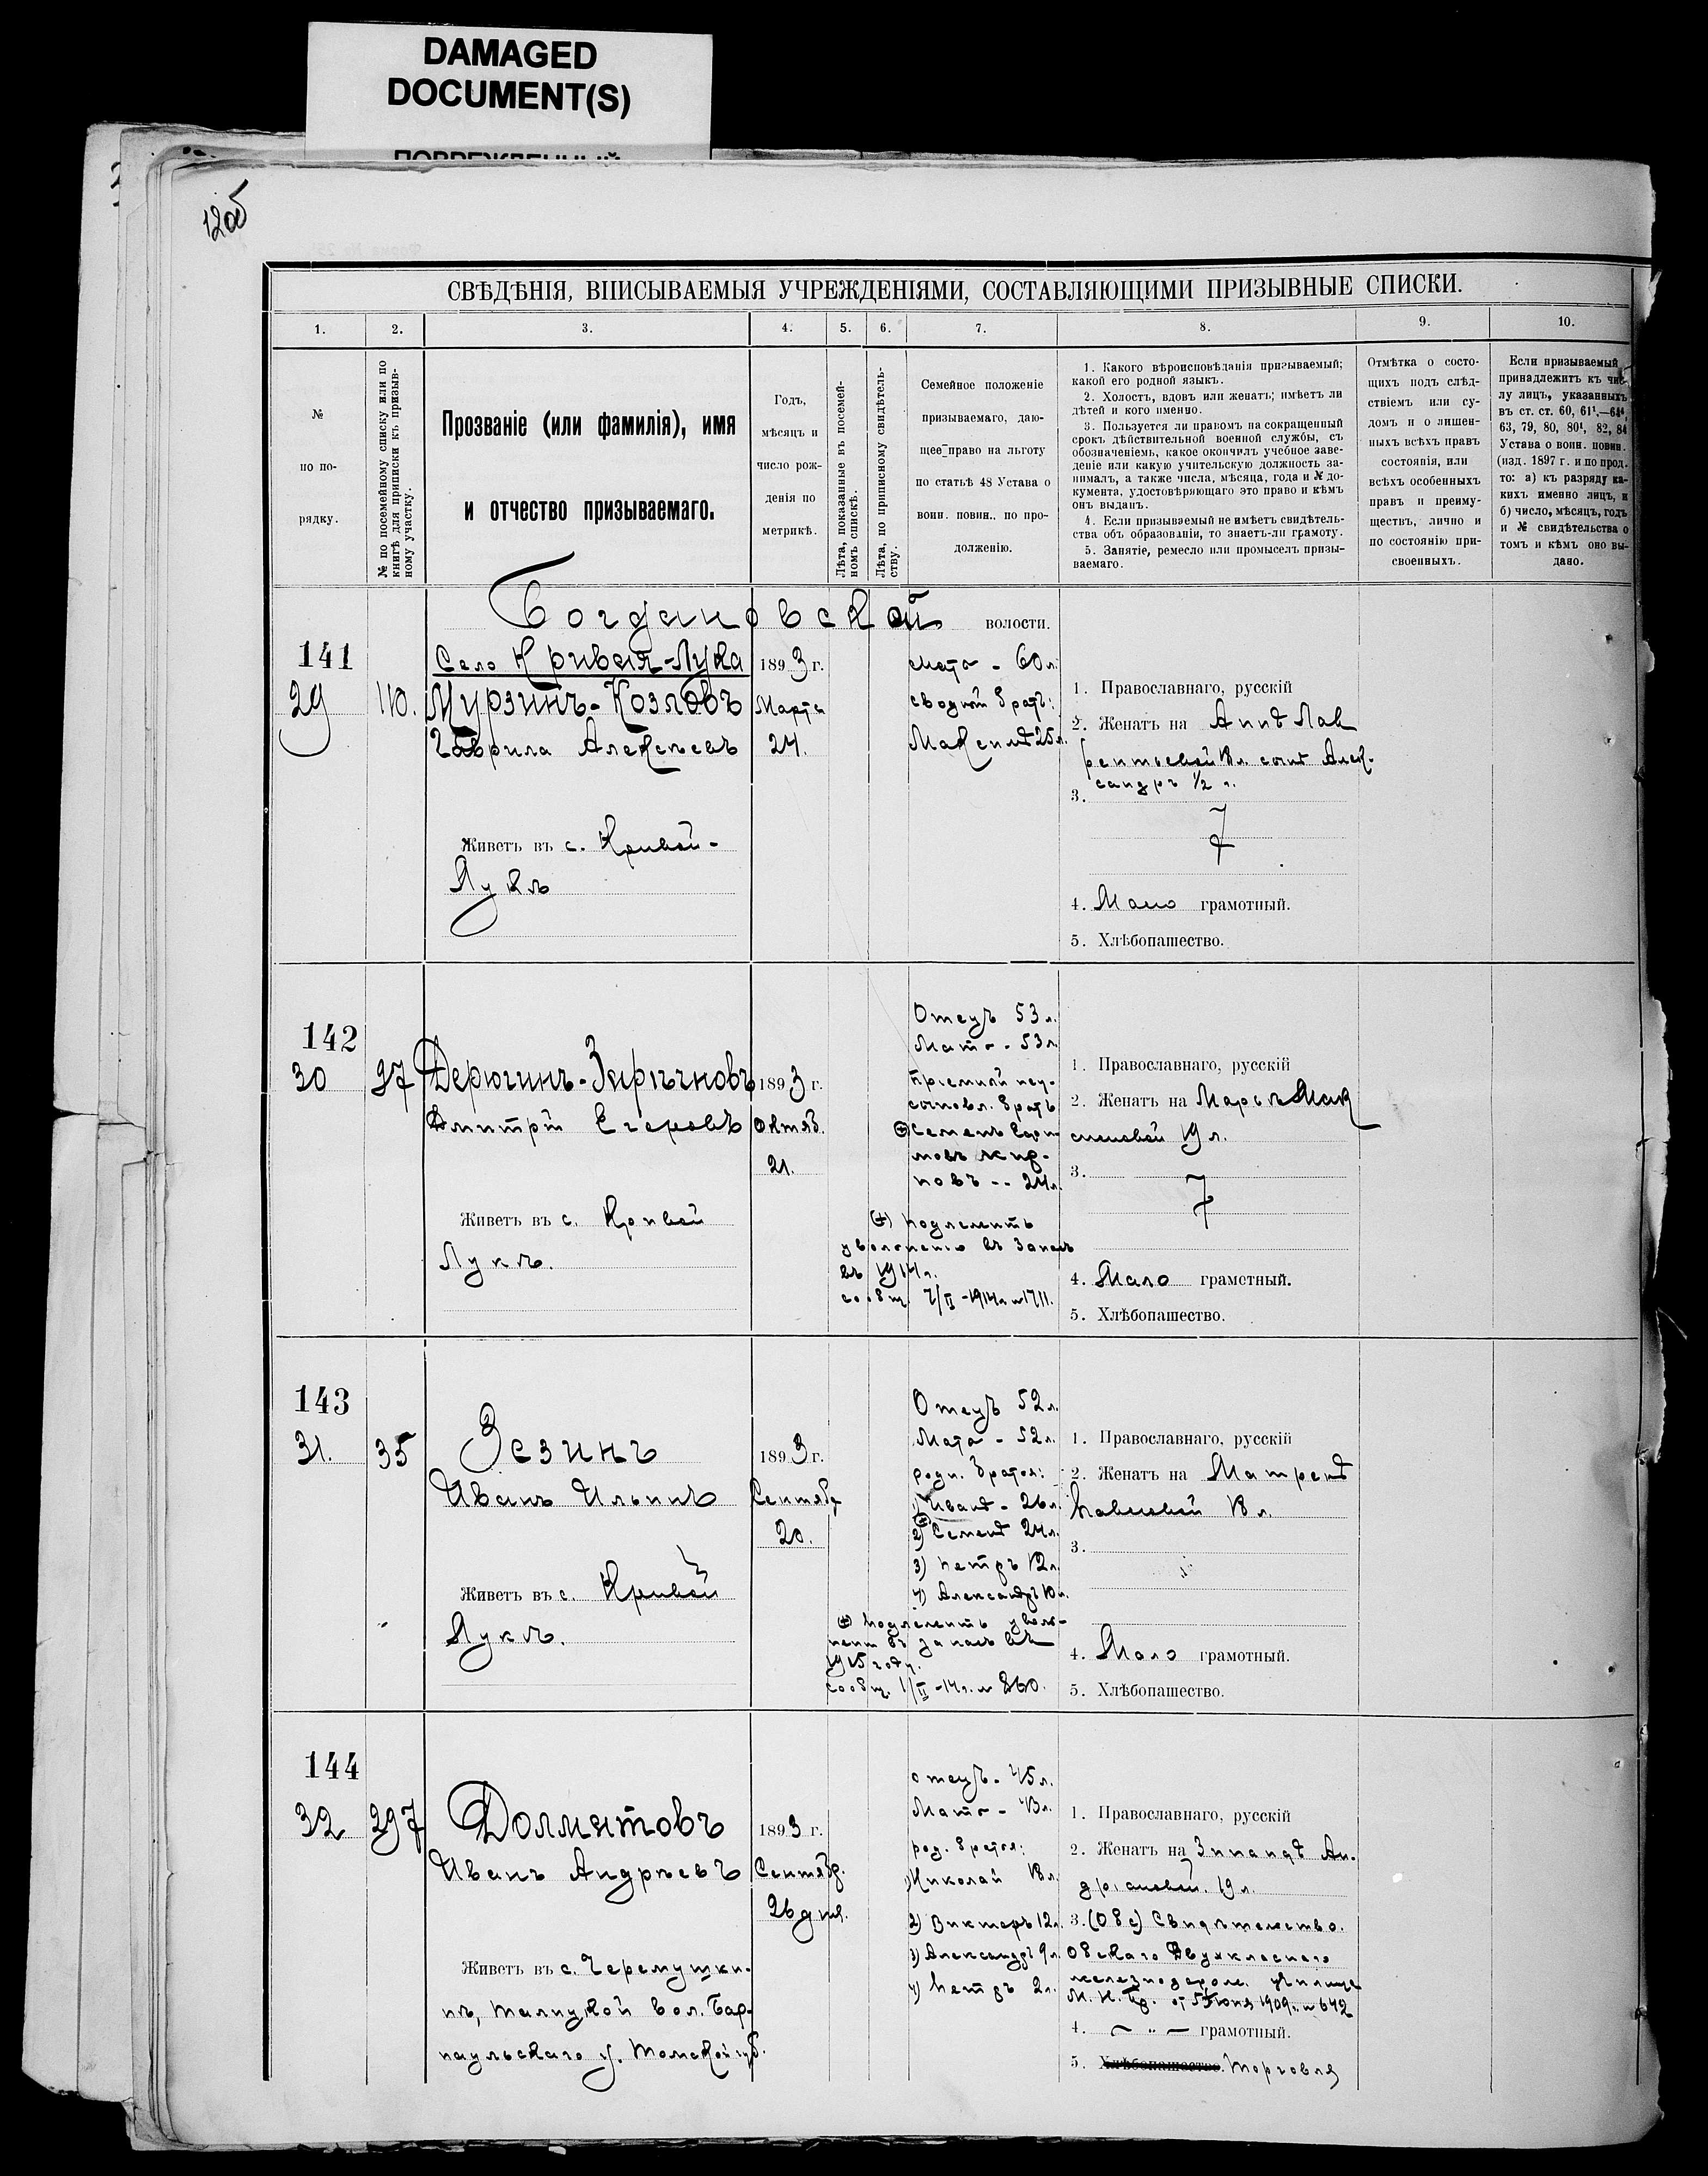 DAMAGED
DOCUMENT(S)
ПОВРЕЖДЕННЫЙ
120б
СВѢДѢНІЯ, ВПИСЫВАЕМЫЯ УЧРЕЖДЕНІЯМИ, СОСТАВЛЯЮЩИМИ ПРИЗЫВНЫЕ СПИСКИ.
1. 2. 3. 4. 5. 6. 7. 8. 9. 10.
№
по по-
рядку.
№ по посемейному списку или по
книгѣ для приписки къ призыв-
ному участку.
Прозваніе (или фамилія), имя
и отчество призываемаго.
Годъ,
мѣсяцъ и
число рож-
денія по
метрикѣ.
Лѣта, показанные въ посемей-
номъ спискѣ.
Лѣта, по приписному свидѣтель-
ству.
Семейное положеніе
призываемаго, даю-
щее право на льготу
по статьѣ 48 Устава о
воин. повин., по про-
долженію.
1. Какого вѣроисповѣданія призываемый;
какой его родной языкъ.
2. Холостъ, вдовъ или женатъ; имѣетъ ли
дѣтей и кого именно.
3. Пользуется ли правомъ на сокращенный
срокъ дѣйствительной военной службы, съ
обозначеніемъ, какое окончилъ учебное заве-
деніе или какую учительскую должность за-
нималъ, а также числа, мѣсяца, года и № до-
кумента, удостовѣряющаго это право и кѣмъ
онъ выданъ.
4. Если призываемый не имѣетъ свидѣтель-
ства объ образованіи, то знаетъ-ли грамоту.
5. Занятіе, ремесло или промыселъ призы-
ваемаго.
Отмѣтка о состо-
щихъ подъ слѣд-
ствіемъ или су-
домъ и о лишен-
ныхъ всѣхъ правъ
состоянія, или
всѣхъ особенныхъ
правъ и преиму-
ществъ, лично и
по состоянію при-
своенныхъ.
Если призываемый
принадлежитъ къ чис-
лу лицъ, указанныхъ
въ ст. ст. 60, 61¹,—64⁴,
63, 79, 80, 80¹, 82, 84
Устава о воин. повин.
(изд. 1897 г. и по прод.
то: а) къ разряду ка-
кихъ именно лицъ, и
б) число, мѣсяцъ, годъ
и № свидѣтельства о
томъ и кѣмъ оно вы-
дано.
Богдановской волости.
141
29
110.
Село Кривая-Лука
Мурзинъ-Козловъ
Гаврила Алексѣевъ
Живетъ въ с. Кривой-
Лукѣ
1893 г.
Марта
24.
Мать - 60 л.
сводный братъ:
Максимъ 25 л.
1. Православнаго, русскій
2. Женатъ на Аннѣ Лав
рентьевой 18 л. сынъ Алек-
сандръ 1/2 г.
3.
4. Мало грамотный.
5. Хлѣбопашество.
142
30
97
Дерюгинъ-
Дмитрій Егоровъ
Живетъ въ с. Кривой
Лукѣ.
1893 г.
Октяб.
21.
Отецъ 53 л.
Мать - 53 л.
пріемный неу-
сыновл. братъ
Семенъ
новъ -- 24 л.
(+) подлежитъ
увольненію въ запасъ
въ 1914 г.
сообщ. 7/II -1914 г. № 1711.
1. Православнаго, русскій
2. Женатъ на Марѳѣ Мак
симовой 19 л.
3.
4. Мало грамотный.
5. Хлѣбопашество.
143
31.
35
Зезинъ
Иванъ Ильинъ
Живетъ въ с. Кривой
Лукѣ.
1893 г.
Сентябр
20.
Отецъ 52 л.
Мать - 52 л.
родн. братья:
1) Иванъ - 26 л.
2) Семенъ 24 л.
3) Петръ 12 л.
4) Александръ 10 л.
(+) подлежитъ уволь-
ненію въ запасъ въ
1915 году.
сообщ. 1/II -14 г. № 860.
1. Православнаго, русскій
2. Женатъ на Матренѣ
Павловой 18 л.
3.
4. Мало грамотный.
5. Хлѣбопашество.
144
32
297
Долматовъ
Иванъ Андреевъ
Живетъ въ с. Черемушки-
нѣ, Талицкой вол. Бар-
наульскаго у. Томской губ.
1893 г.
Сентябр.
26 дня.
отецъ - 45 л.
Мать - 43 л.
род. братья:
1) Николай 18 л.
2) Викторъ 12 л.
3) Александръ 9 л.
4) Петръ 2 л.
1. Православнаго, русскій
2. Женатъ на Зинаидѣ Ан-
дріановой. 19 л.
3. Свидѣтельство.
Обскаго Двухкласснаго
железнодорож. училища
М. Н. Пр. от 5 Іюня 1909 г. № 642
4. — „ — грамотный.
5. Хлѣбопашество. торговля